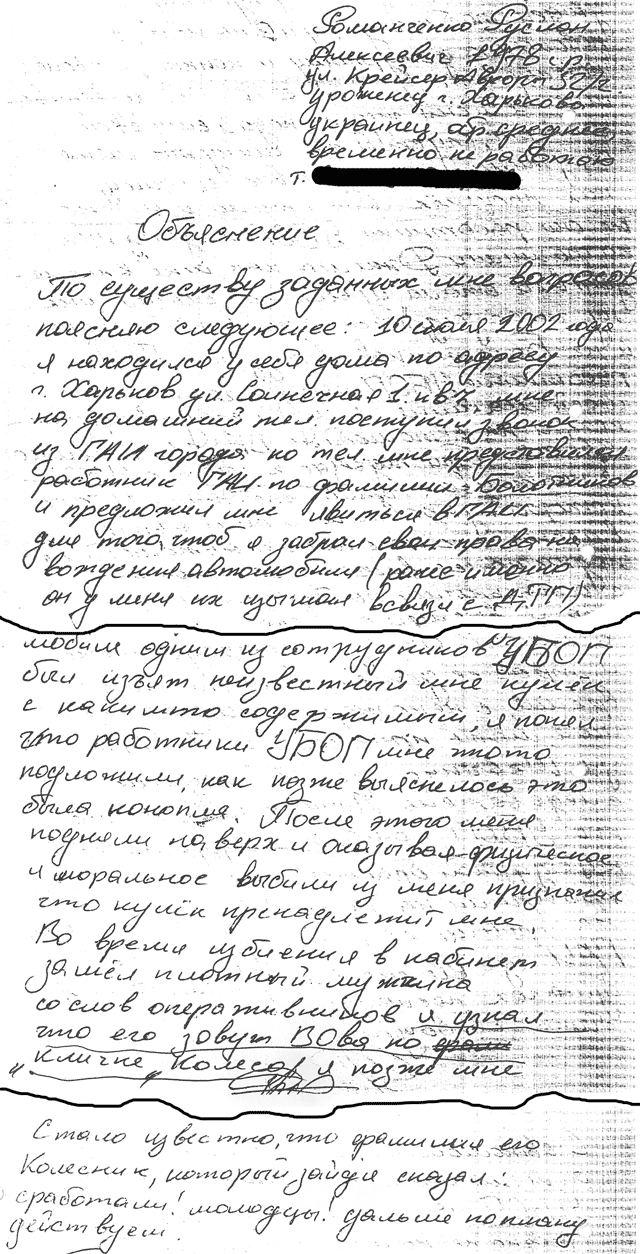 Романченко Руслан
Алексеевич 1978 г.р.
ул. Крейсер Аврора
уроженец г. Харькова
украинец, обр. среднее,
временно не работаю
т.
Объяснение
По существу заданных мне вопросов
поясняю следующее: 10 июля 2002 года
я находился у себя дома по адресу
г. Харьков ул. Солнечная 1 кв 4, мне
на домашний тел поступил звонок
из ГАИ города по тел. мне представился
работник ГАИ по фамилии Болотников
и предложил мне явиться в ГАИ
для того, чтоб я забрал свои права на
вождения автомобиля (ранее именно
он у меня их изымал всвязи с ДТП)
мобиле одним из сотрудников УБОП
был изъят неизвестный мне кулёк
с каким то содержимым, я понял
что работники УБОП мне что то
подложили, как позже выяснилось это
была конопля. После этого меня
подняли на верх и оказывая физическое
и моральное выбили из меня признания
что кулёк пренадлежит мне.
Во время избиения в кабинет
зашёл плотный мужчина
со слов оперативников я узнал
что его зовут ВОва по
кличке „Колесо„ я позже мне
Стало известно, что фамилия его
Колесник, который зайдя сказал:
сработали! молодцы! дальше по плану
действуем.